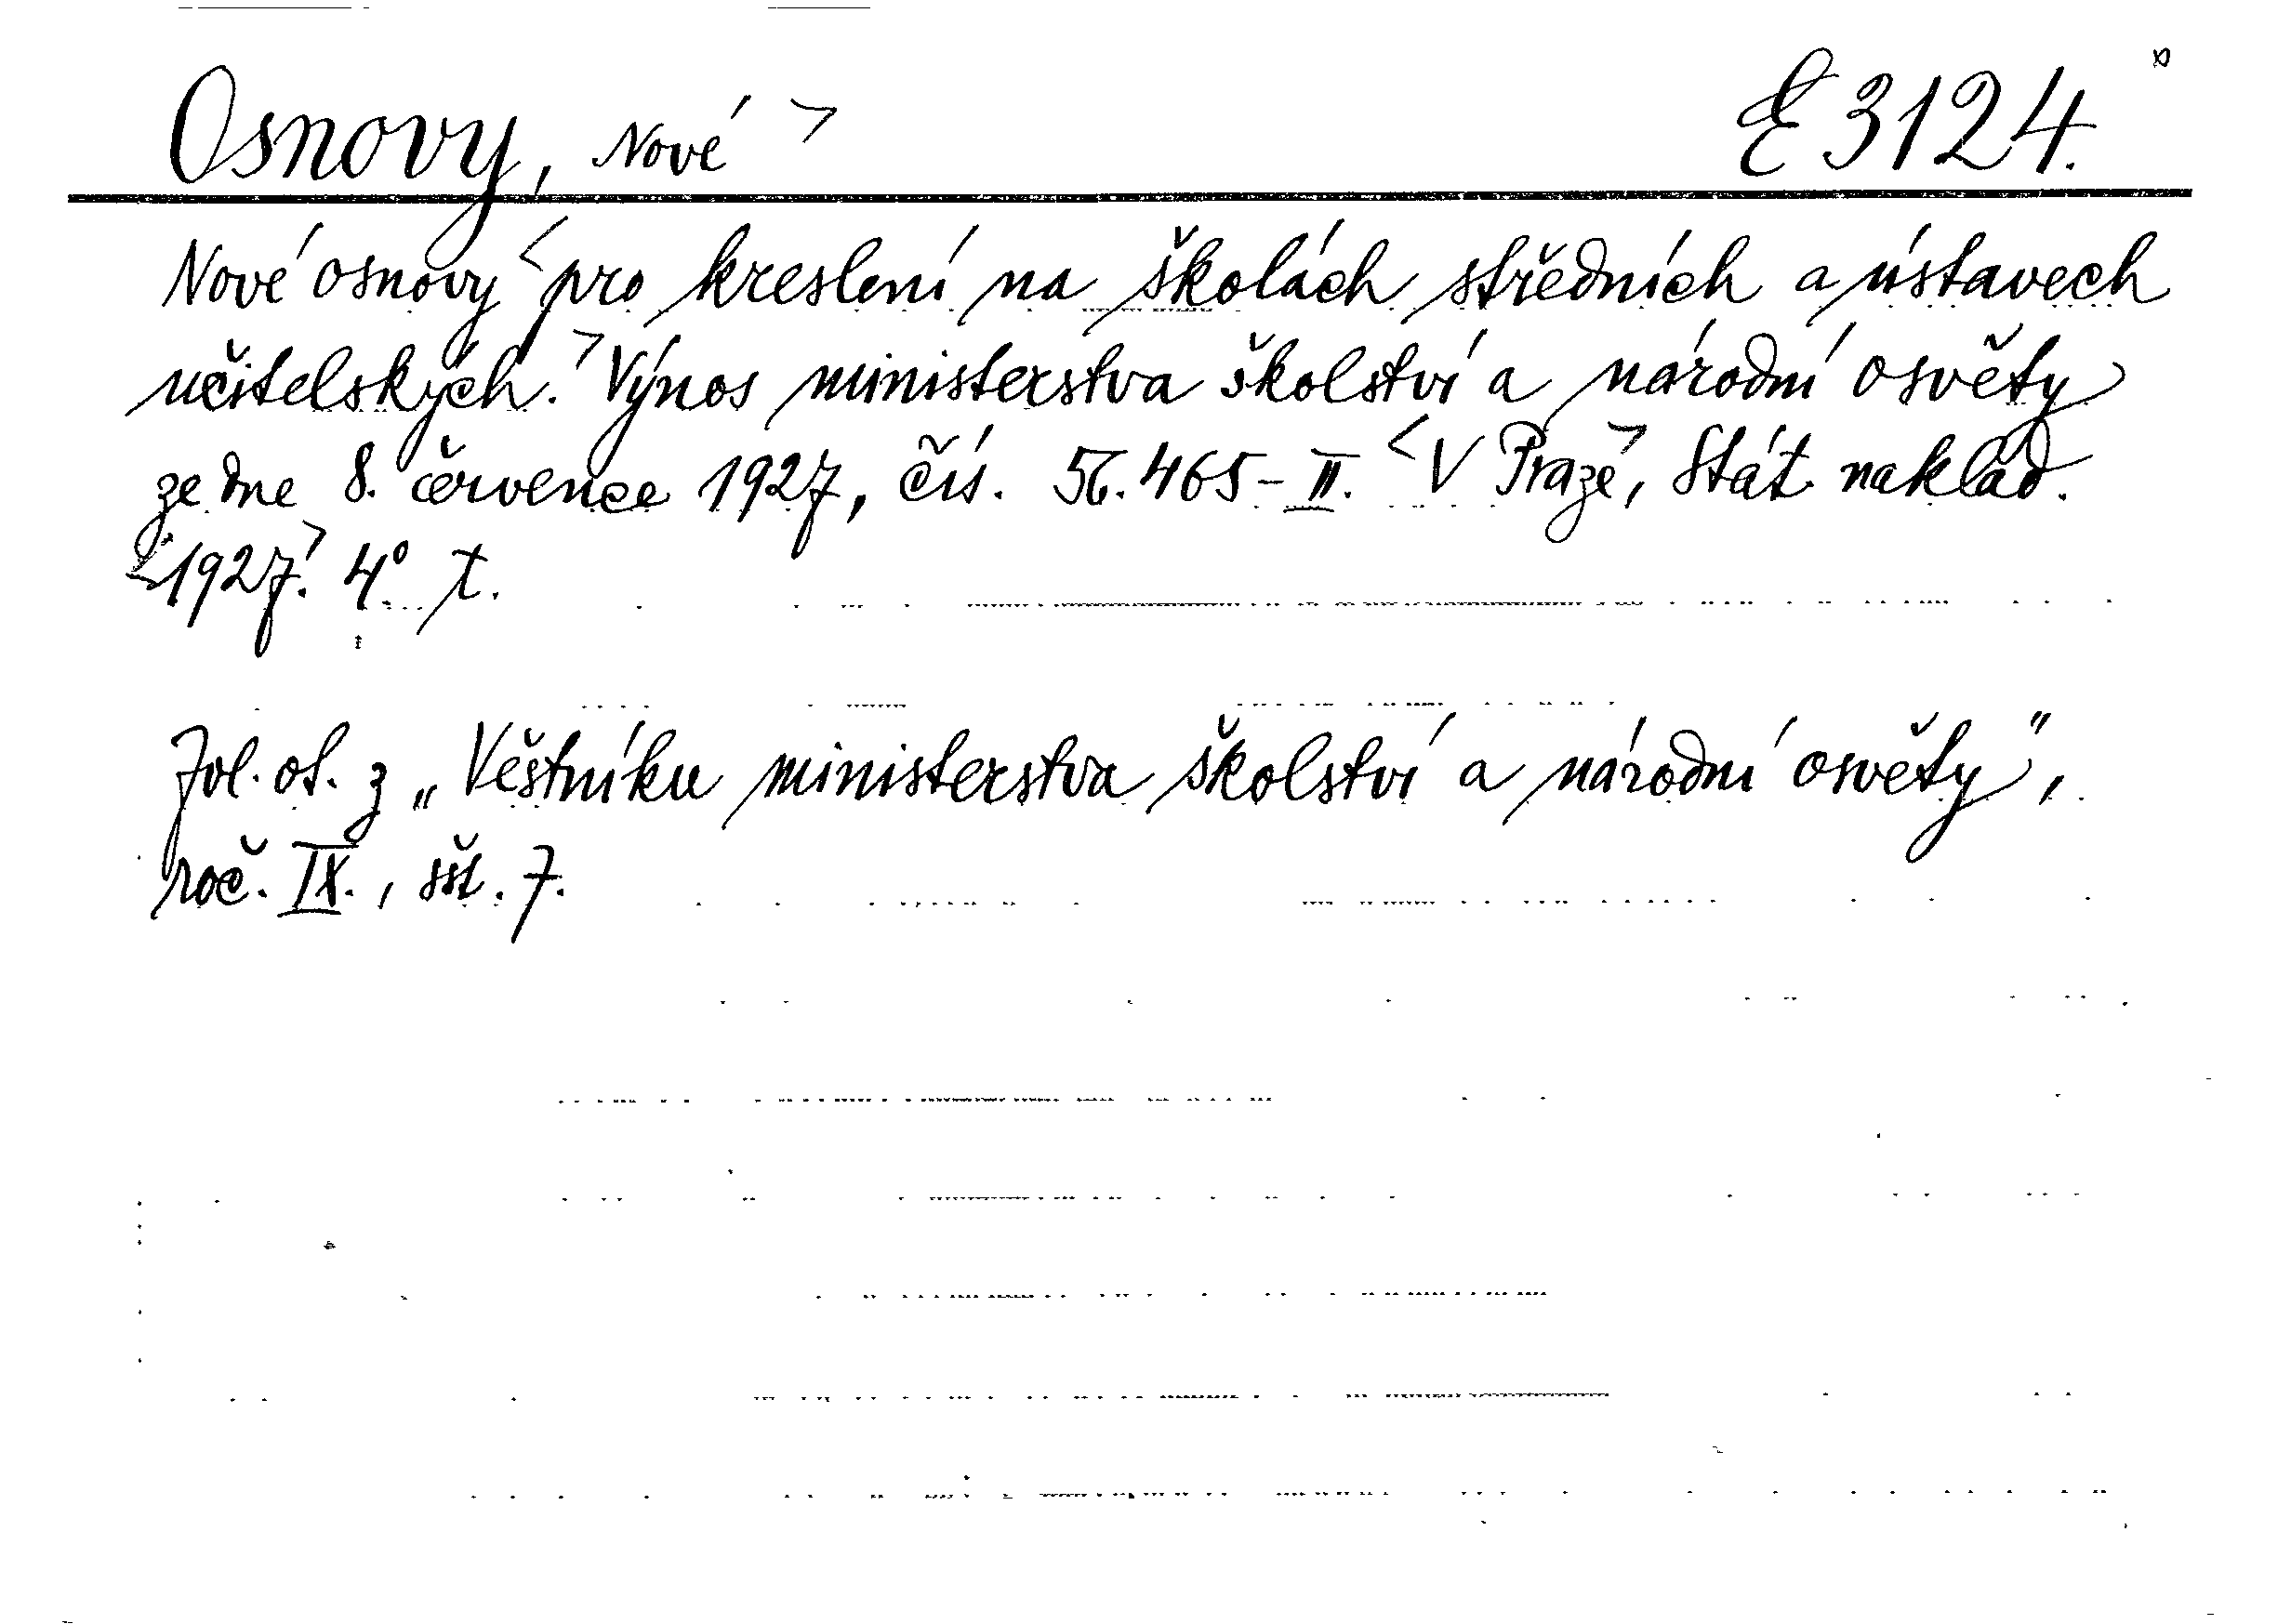 Osnovy, Nové > E 3124.
Nové osnovy < pro kreslení na školách středních a ústavech
učitelských. > Výnos ministerstva školství a národní osvěty
ze dne 8. července 1927, čís. 56.465-II. < V Praze >, Stát. naklad.
< 1927. > 4° t.
Zvl. ot. z „Věstníku ministerstva školství a národní osvěty",
roč. IX., sš. 7.